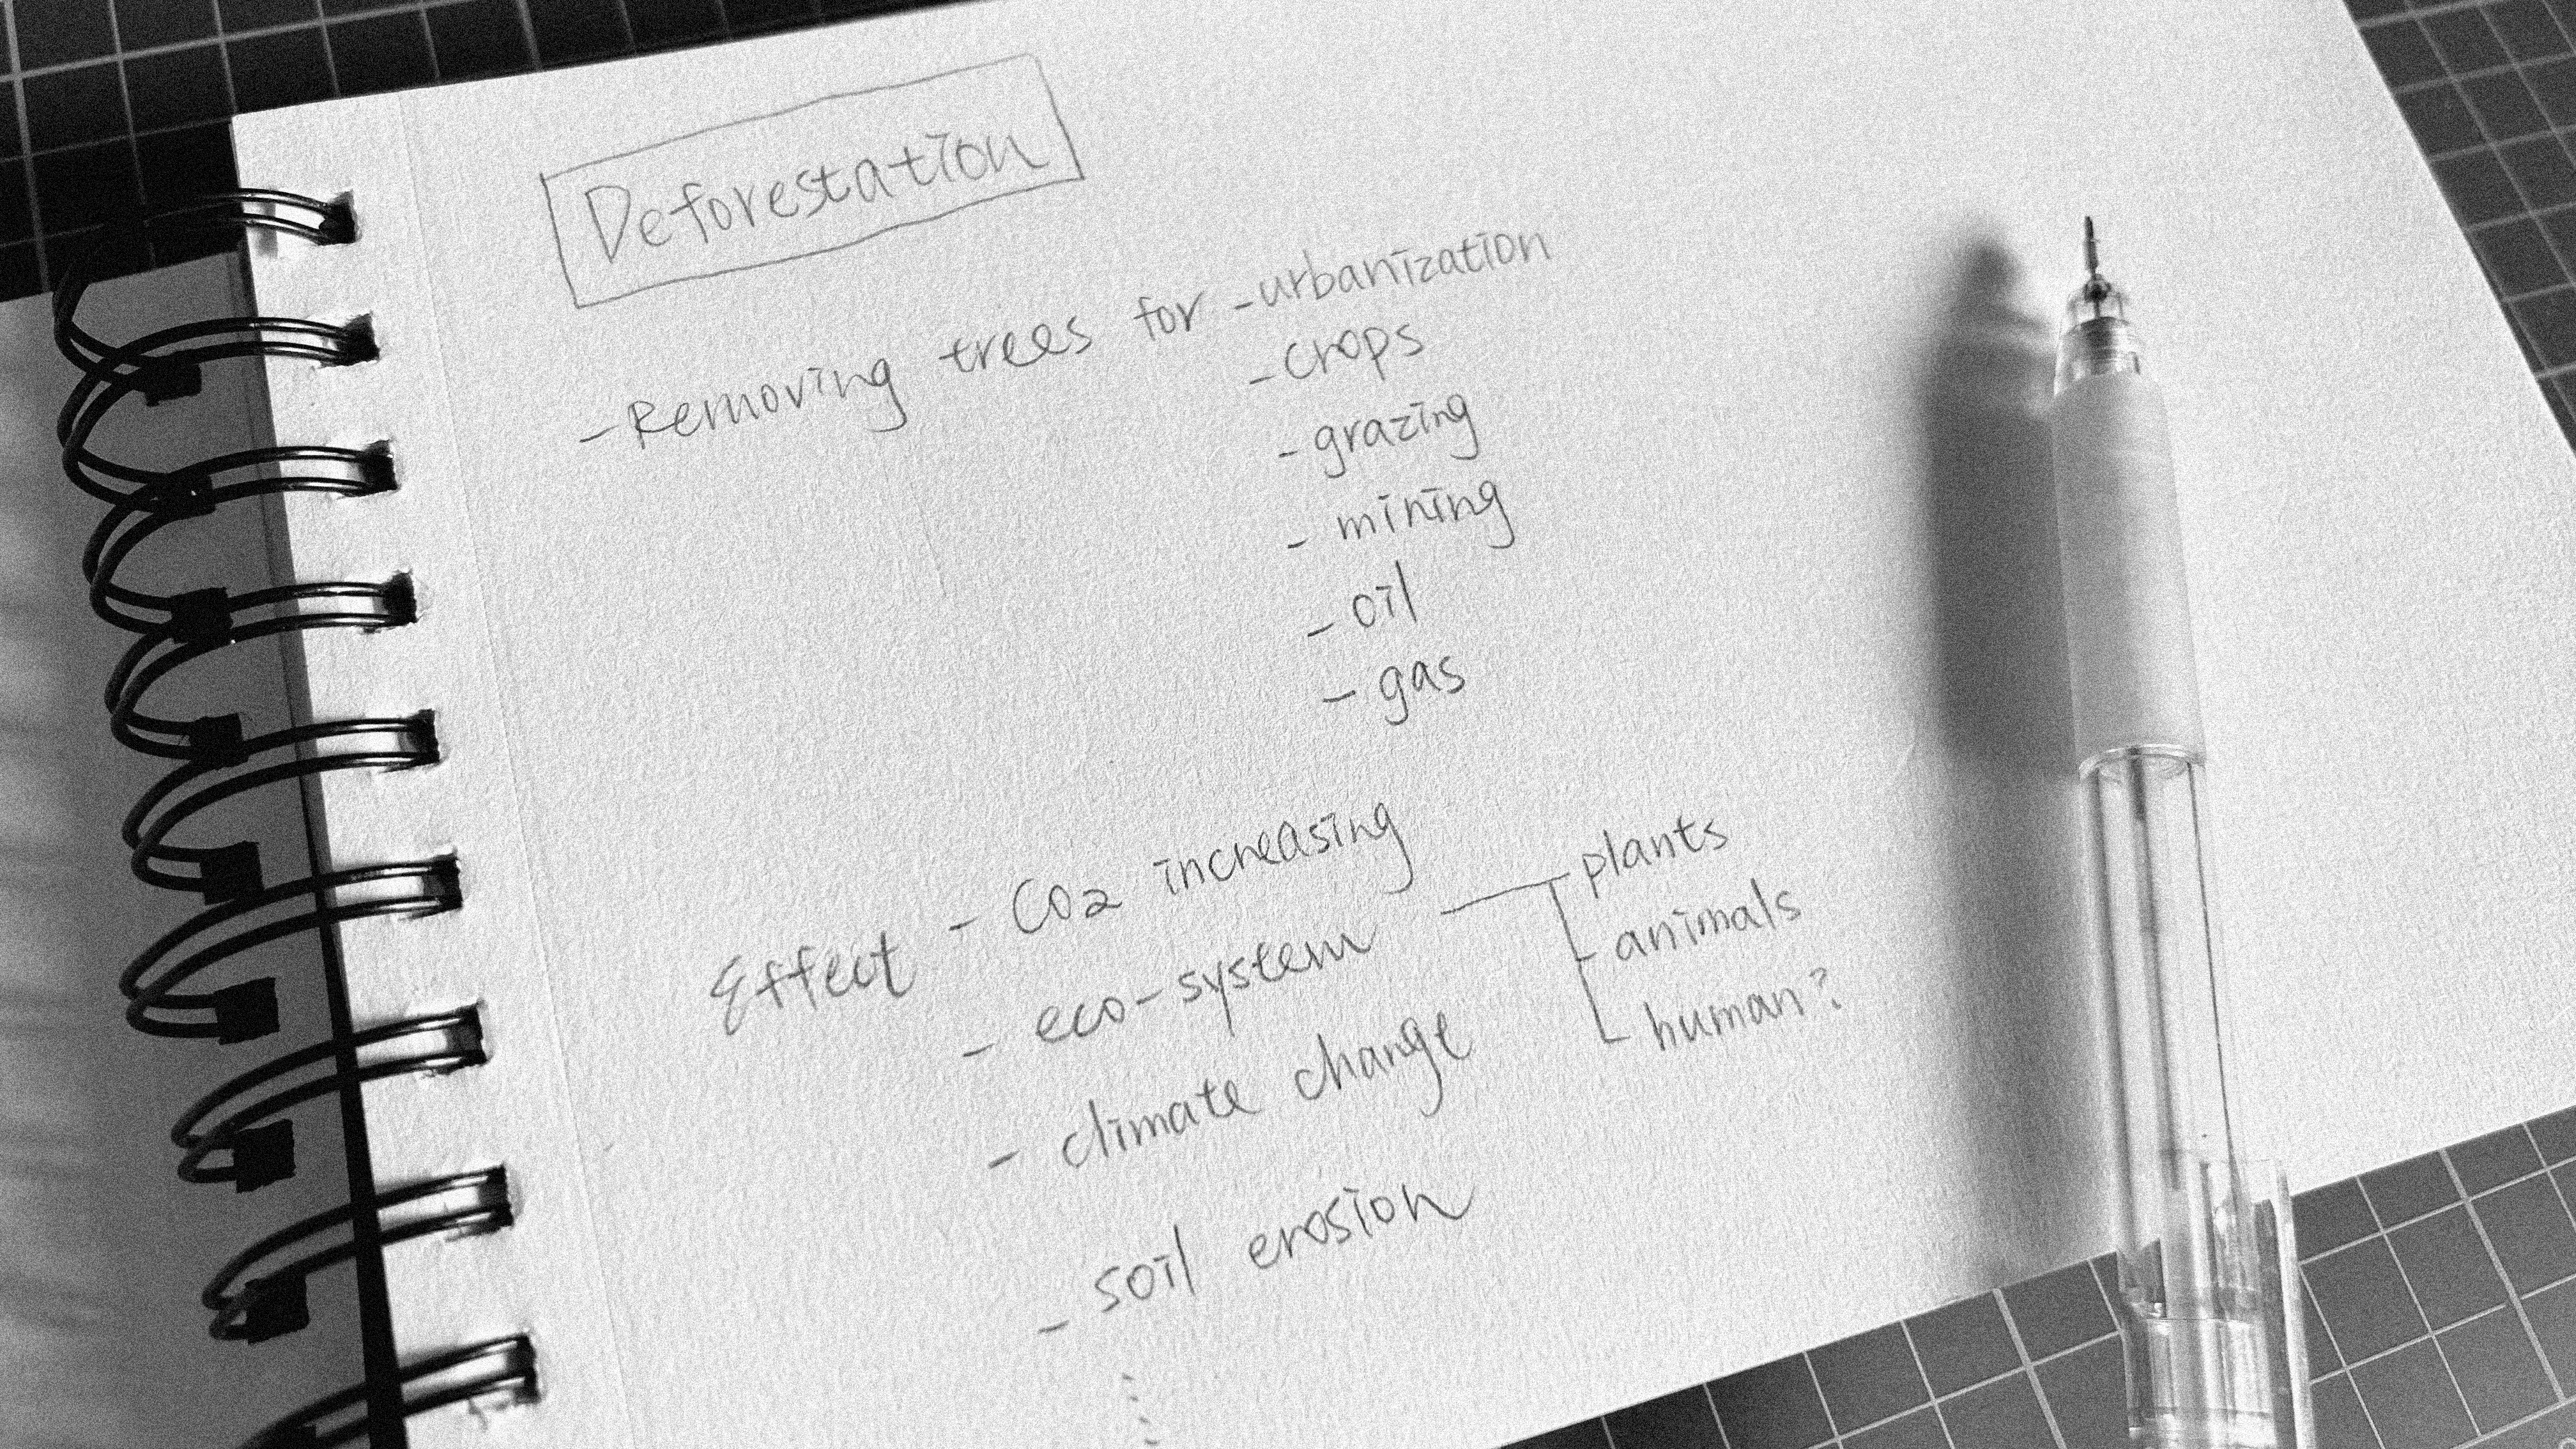 Deforestation
- Removing trees for - urbanization
- crops
- grazing
- mining
- oil
- gas
Effect - CO2 increasing
- eco-system — plants
- animals
- human?
- climate change
- soil erosion